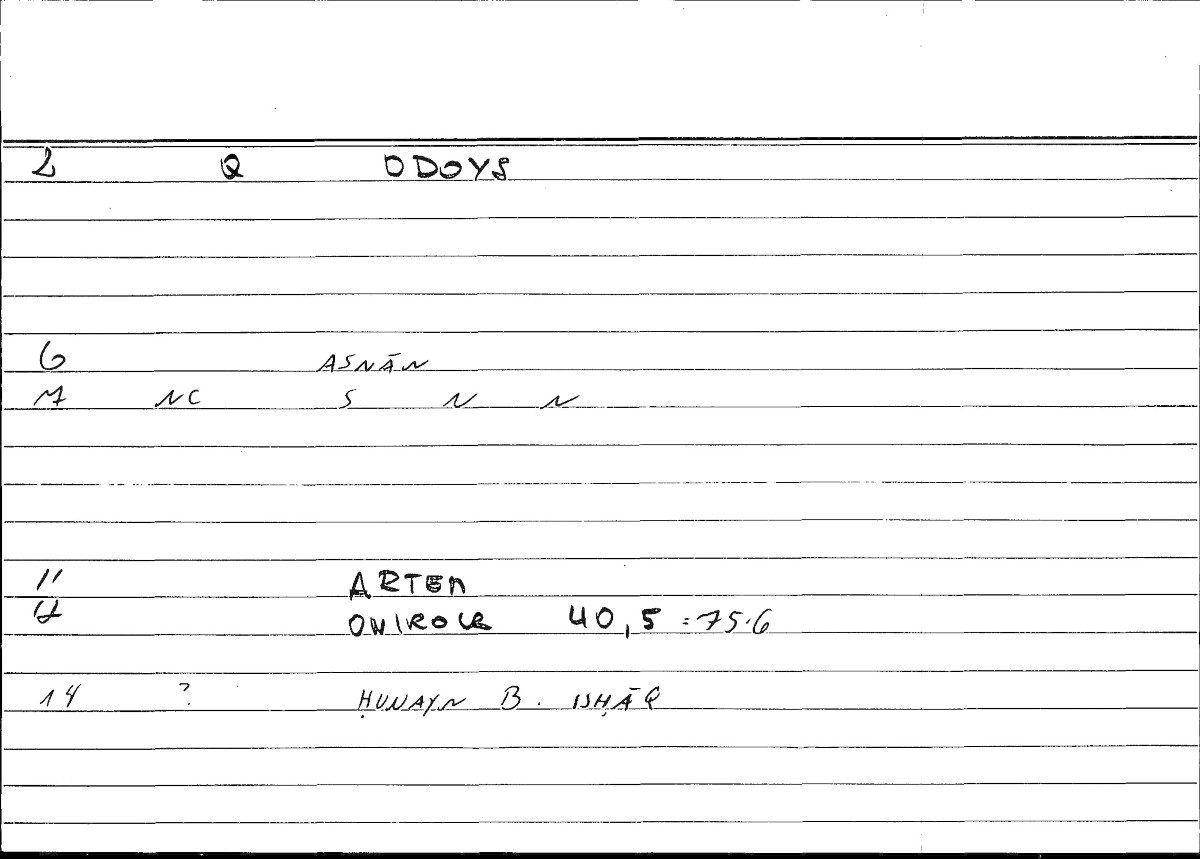 2 Q ODOYS
6 ASNĀN
7 NC S N N
11 ARTEM
12 ONIROCR 40,5 = 75.6
14 ? ḤUNAYN B. ISḤĀQ